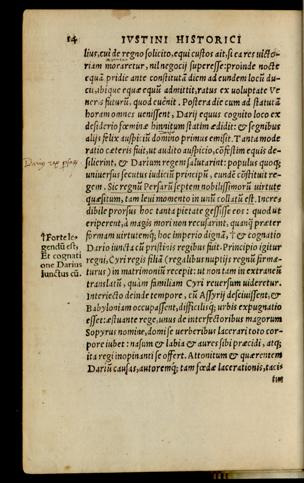 14 IVSTINI HISTORICI
lius, cui de regno solicito, equi custos ait, si ea res victo-
riam moraretur, nil negocij superesse: proinde nocte
equā pridie ante constitutā diem ad eundem locū du-
cit, ibique equæ equū admittit, ratus ex voluptate Ve
neris futurū, quod euenit. Postera die cum ad statutā
horam omnes uenissent, Darij equus cognito loco ex
desiderio fœminæ hinnitum statim ædidit: & segnibus
alijs felix auspicium domino primus emisit. Tanta mode
ratio cæteris fuit, ut audito auspicio, cōfestim equis de-
silierint, & Darium regem salutarint: populus quoq;
uniuersus secutus iudiciū principū, eundē cōstituit re-
gem. Sic regnū Persarū septem nobilissimorū uirtute
quæsitum, tam leui momento in unū collatū est. Incre
dibile prorsus hoc tanta pietate gessisse eos: quod ut
eriperent, à magis mori non recusarint. quanq̄ præter
formam uirtutemq; hoc imperio dignā, † & cognatio
Dario iuncta cū pristinis regibus fuit. Principio igitur
regni, Cyri regis filiā (regalibus nuptijs regnū firma-
turus) in matrimoniū recepit: ut non tam in extraneū
translatū, quàm familiam Cyri reuersum uideretur.
Interiecto deinde tempore, cū Assyrij desciuissent, &
Babyloniam occupassent, difficilisq; urbis expugnatio
esset: æstuante rege, unus de interfectoribus magorum
Sopyrus nomine, domi se uerberibus lacerari toto cor-
pore iubet: nasum & labia & aures sibi præcidi, atq;
ita regi inopinanti se offert. Attonitum & quærentem
Dariū causas, autoremq; tam fœdæ lacerationis, tacis
†Forte le-
gendū est,
Et cognati
one Darius
iunctus cū.